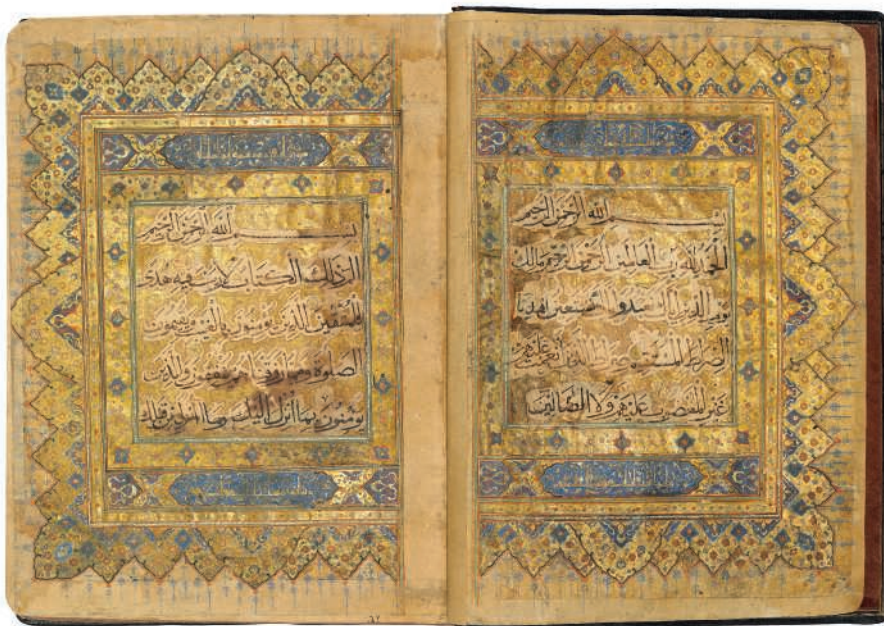 بسم الله الرحمن الرحيم
الحمد لله رب العالمين الرحمن الرحيم مالك
يوم الدين اياك نعبد واياك نستعين اهدنا
الصراط المستقيم صراط الذين انعمت عليهم
غير المغضوب عليهم ولا الضالين
بسم الله الرحمن الرحيم
الم ذلك الكتاب لا ريب فيه هدى
للمتقين الذين يؤمنون بالغيب ويقيمون
الصلوة ومما رزقناهم ينفقون والذين
يؤمنون بما انزل اليك وما انزل من قبلك